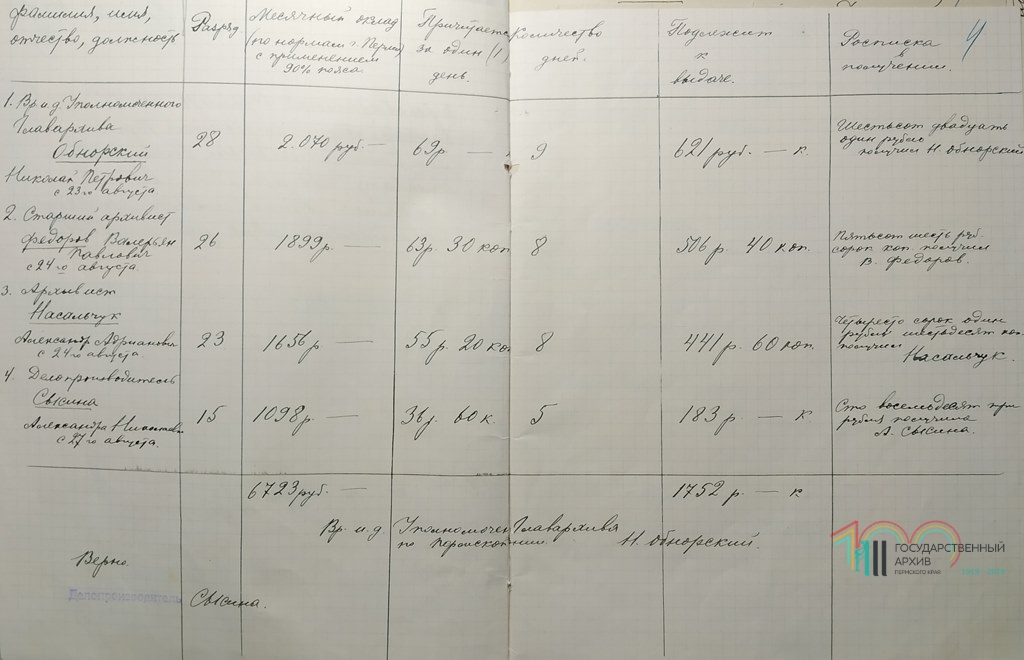 фамилия, имя,
отчество, должность
Разряд
Месячный оклад
(по нормам г. Перми)
с применением
90% пояса.
Причитается
за один (1)
день.
Количество
дней.
Подлежит
к
выдаче.
Росписка
в
получении.
4
1. Вр. и. д. Уполномоченного
Главархива
Обнорский
Николай Петрович
с 23го августа
28
2.070 руб. —
69р —
9
621 руб. — к.
Шестьсот двадцать
один рубль
получил Н. Обнорский
2. Старший архивист
Федоров Валерьян
Павлович
с 24го августа.
26
1899р. —
63р. 30 коп
8
506 р. 40 коп.
Пятьсот шесть руб.
сорок коп. получил
В. Федоров.
3. Архивист
Насальчук
Александр Адрианович
с 24го августа.
23
1656 р —
55 р. 20 коп
8
441 р. 60 коп.
Четыреста сорок один
рубль шестьдесят коп
получил
Насальчук.
4. Делопроизводитель
Свысина
Александра
с 27го августа.
15
1098р. —
36р. 60 к.
5
183 р. — к
Сто восемьдесят три
рубля получила
А. Свысина.
6723 руб. —
1752 р. — к
Вр. и. д. Уполномочен Главархива
по Пермской
Н. Обнорский.
Верно.
Делопроизводитель Свысина.
100
ГОСУДАРСТВЕННЫЙ
АРХИВ
ПЕРМСКОГО КРАЯ